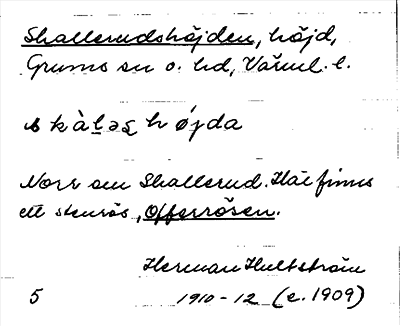 Skallerudshöjden, höjd,
Grums sn o. hd, Värml. l.
skàḷəṣhø̀jda
Norr om Skallerud. Här finns
ett stenrös, Offerrösen.
Herman Hultström
5 1910-12 (c. 1909)